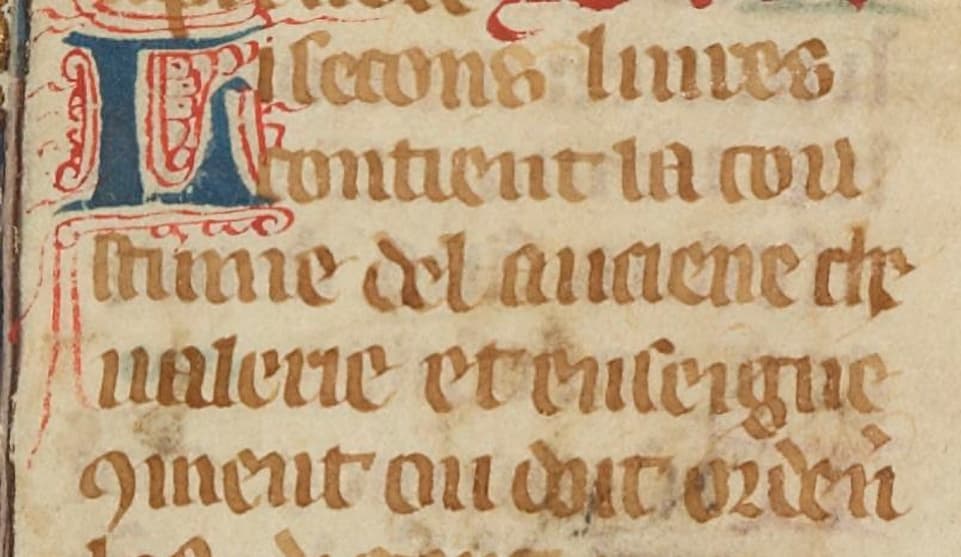 Li secons liures
contient la cou
stume del anciene che
ualerie et enseigne
ꝯment on doit ordeñ